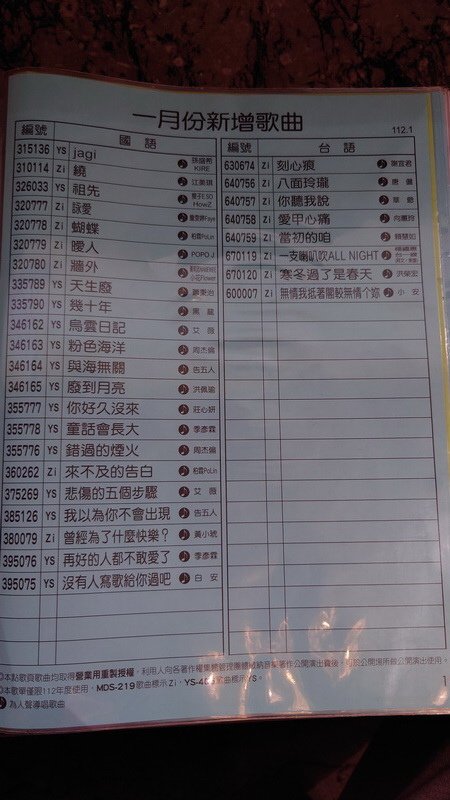 一月份新增歌曲
112.1
編號 國語
315136 YS jagi 孫盛希 KIRE
310114 Zi 繞 江美琪
326033 YS 祖先
320777 Zi 詠愛
320778 Zi 蝴蝶 柏霖PoLin
320779 Zi 曖人 POPO J
320780 Zi 牆外
335789 YS 天生廢
335790 YS 幾十年 黑龍
346162 YS 烏雲日記 艾薇
346163 YS 粉色海洋 周杰倫
346164 YS 與海無關 告五人
346165 YS 廢到月亮 洪佩瑜
355777 YS 你好久沒來 莊心妍
355778 YS 童話會長大 季彥霖
355776 YS 錯過的煙火 周杰倫
360262 Zi 來不及的告白 柏霖PoLin
375269 YS 悲傷的五個步驟 艾薇
385126 YS 我以為你不會出現 告五人
380079 Zi 曾經為了什麼快樂？ 黃小琥
395076 YS 再好的人都不敢愛了 季彥霖
395075 YS 沒有人寫歌給你過吧 白安
編號 台語
630674 Zi 刻心痕 謝宜君
640756 Zi 八面玲瓏 唐儷
640757 Zi 你聽我說 草爺
640758 Zi 愛甲心痛 向蕙玲
640759 Zi 當初的咱 賴慧如
670119 Zi 一支喇叭吹ALL NIGHT
670120 Zi 寒冬過了是春天 洪榮宏
600007 Zi 無情我抵著閣較無情个妳 小安
本點歌頁歌曲均取得營業用重製授權，利用人向各著作權集體管理團體繳納音樂著作公開演出費後，可於公開場所做公開演出使用。
本歌單僅限112年度使用，MDS-219歌曲標示Zi，歌曲標示YS。
為人聲導唱歌曲
1